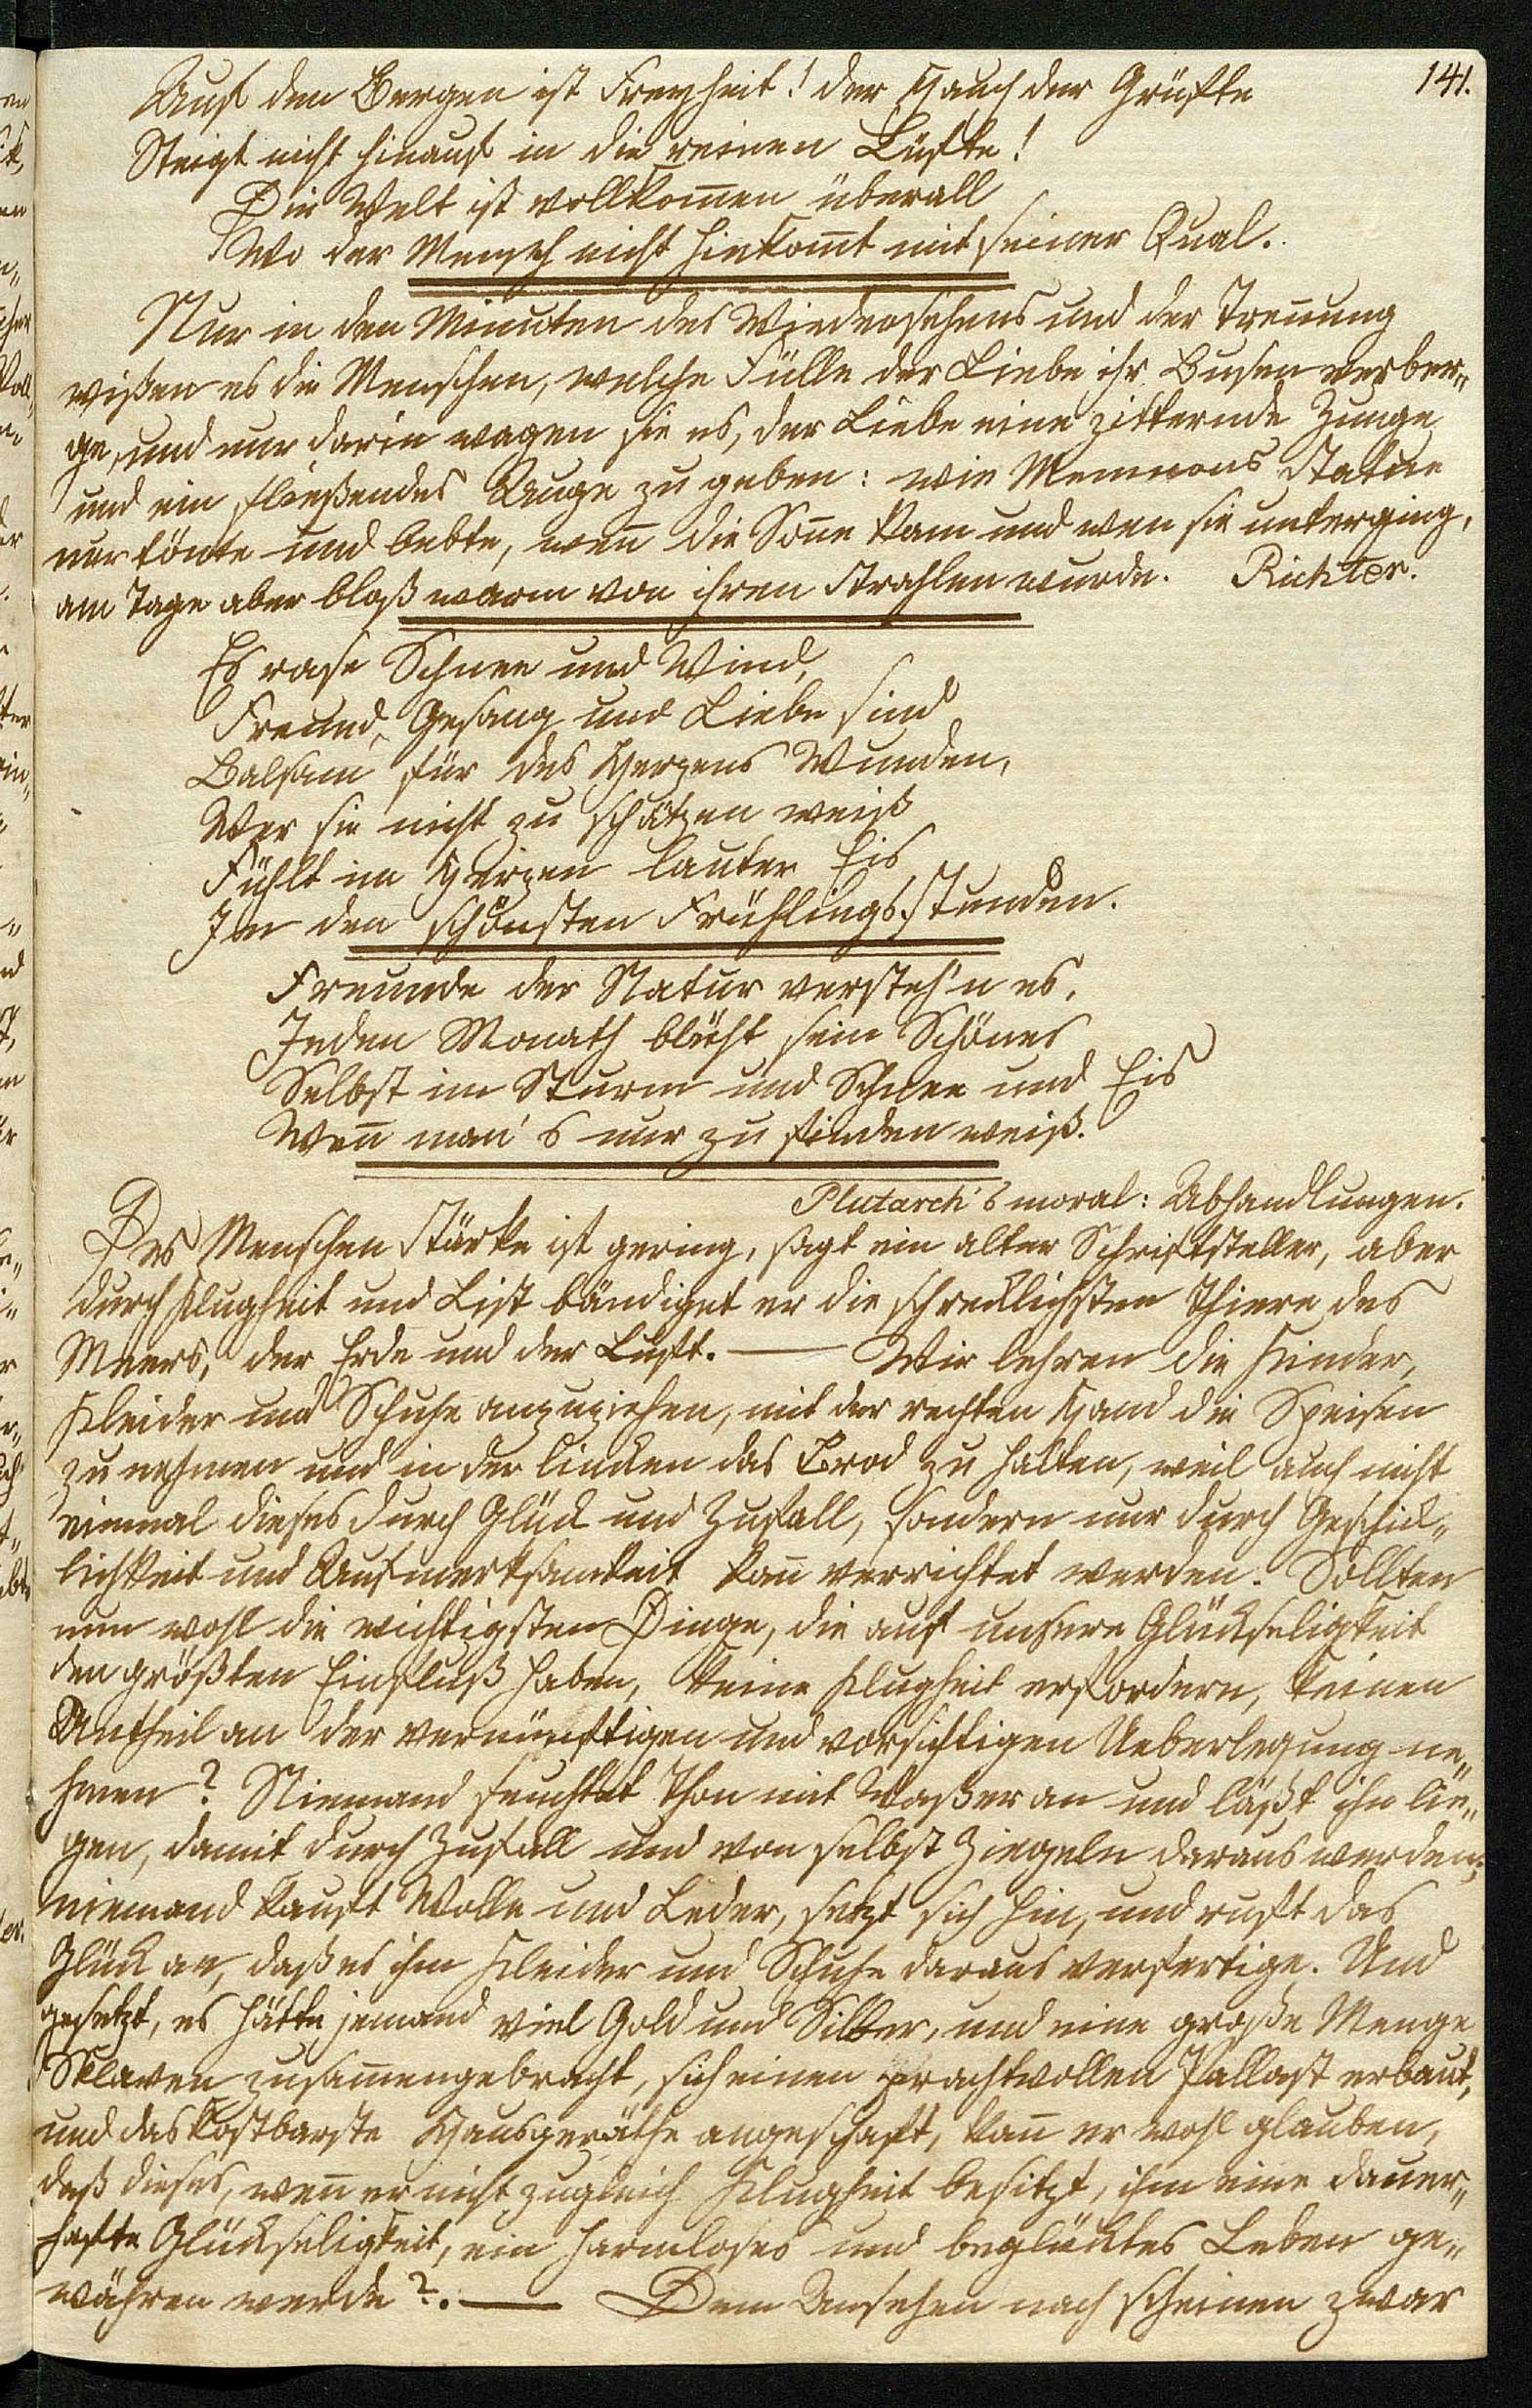 141.
Auf den Bergen ist Freyheit! der Hauch der Grüfte
Steigt nicht hinauf in die reinen Lüfte!
Die Welt ist vollkom̄en überall
Wo der Mensch nicht hinkom̄t mit seiner Qual.
Nur in den Minuten des Wiedersehens und der Treñung
wißen es die Menschen, welche Fülle der Liebe ihr Busen verber„
ge, und nur darin wagen sie es, der Liebe eine zitternde Zunge
und ein fließendes Auge zu geben: wie Memnons Statue
nur tönte und bebte, weñ die Soñe kam und wen sie unterging,
am Tage aber bloß warm von ihren Strahlen wurde. Richter.
Es rase Schnee und Wind,
Freund, Gesang und Liebe sind
Balsam für des Herzens Wunden,
Wer sie nicht zu schätzen weiß
Fühlt im Herzen lauter Eis
In den schönsten Frühlingsstunden.
Freunde der Natur versteh'n es,
Jeden Monath blüht sein Schönes
Selbst im Sturm und Schnee und Eis
Weñ man's nur zu finden weiß.
Plutarch's moral: Abhandlungen.
Des Menschen Stärke ist gering, sagt ein alter Schriftsteller, aber
durch Klugheit und List bändiget er die schrecklichsten Thiere des
Meers, der Erde und der Luft. — Wir lehren die Kinder,
Kleider und Schuhe anzuziehen, mit der rechten Hand die Speisen
zu nehmen und in der linken das Brod zu halten, weil auch nicht
einmal dieses durch Glück und Zufall, sondern nur durch Geschick„
lichkeit und Aufmerksamkeit kañ verrichtet werden. Sollten
nun wohl die wichtigsten Dinge, die auf unsere Glückseligkeit
den größten Einfluß haben, keine Klugheit erfordern, keinen
Antheil an der vernünftigen und vorsichtigen Ueberlegung ne„
hmen? Niemand feuchtet Thon mit Waßer an und läßt ihn lie„
gen, damit durch Zufall und von selbst Ziegeln daraus werden;
niemand kauft Wolle und Leder, setzt sich hin, und ruft das
Glück an, daß es ihm Kleider und Schuhe daraus verfertige. Und
gesetzt, es hätte jemand viel Gold und Silber, und eine große Menge
Sklaven zusam̄engebracht, sich einen prachtvollen Pallast erbaut,
und das kostbarste Hausgeräthe angeschaft, kañ er wohl glauben,
daß dieses, weñ er nicht zugleich Klugheit besitzt, ihm eine dauer„
hafte Glückseligkeit, ein harmloses und beglücktes Leben ge„
währen werde?. — Dem Ansehen nach scheinen zwar